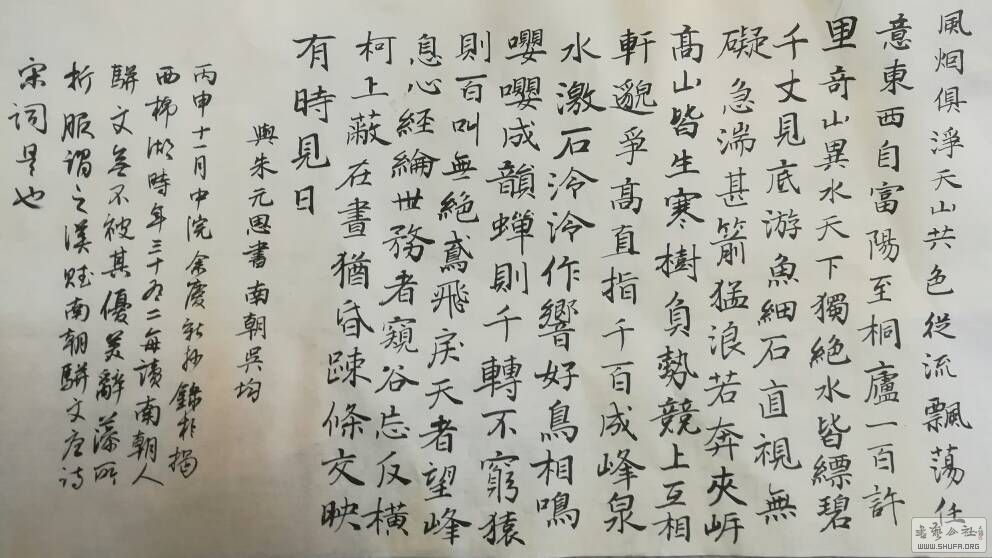 風烟俱淨天山共色從流飄蕩任
意東西自富陽至桐廬一百許
里奇山異水天下獨絶水皆縹碧
千丈見底游魚細石直視無
礙急湍甚箭猛浪若奔夾岍
高山皆生寒樹負勢競上互相
軒邈爭高直指千百成峰泉
水激石泠泠作響好鳥相鳴
嚶嚶成韻蟬則千轉不窮猿
則百叫無絶鳶飛戾天者望峰
息心經綸世務者窺谷忘反橫
柯上蔽在晝猶昏踈條交映
有時見日
與朱元思書南朝吳均
丙申十一月中浣余慶新抄錄於揭
西棉湖時年三十有二每讀南朝人
駢文無不被其優美辭藻所
折服謂之漢賦南朝駢文唐詩
宋詞是也
書法公社
WWW.SHUFA.ORG